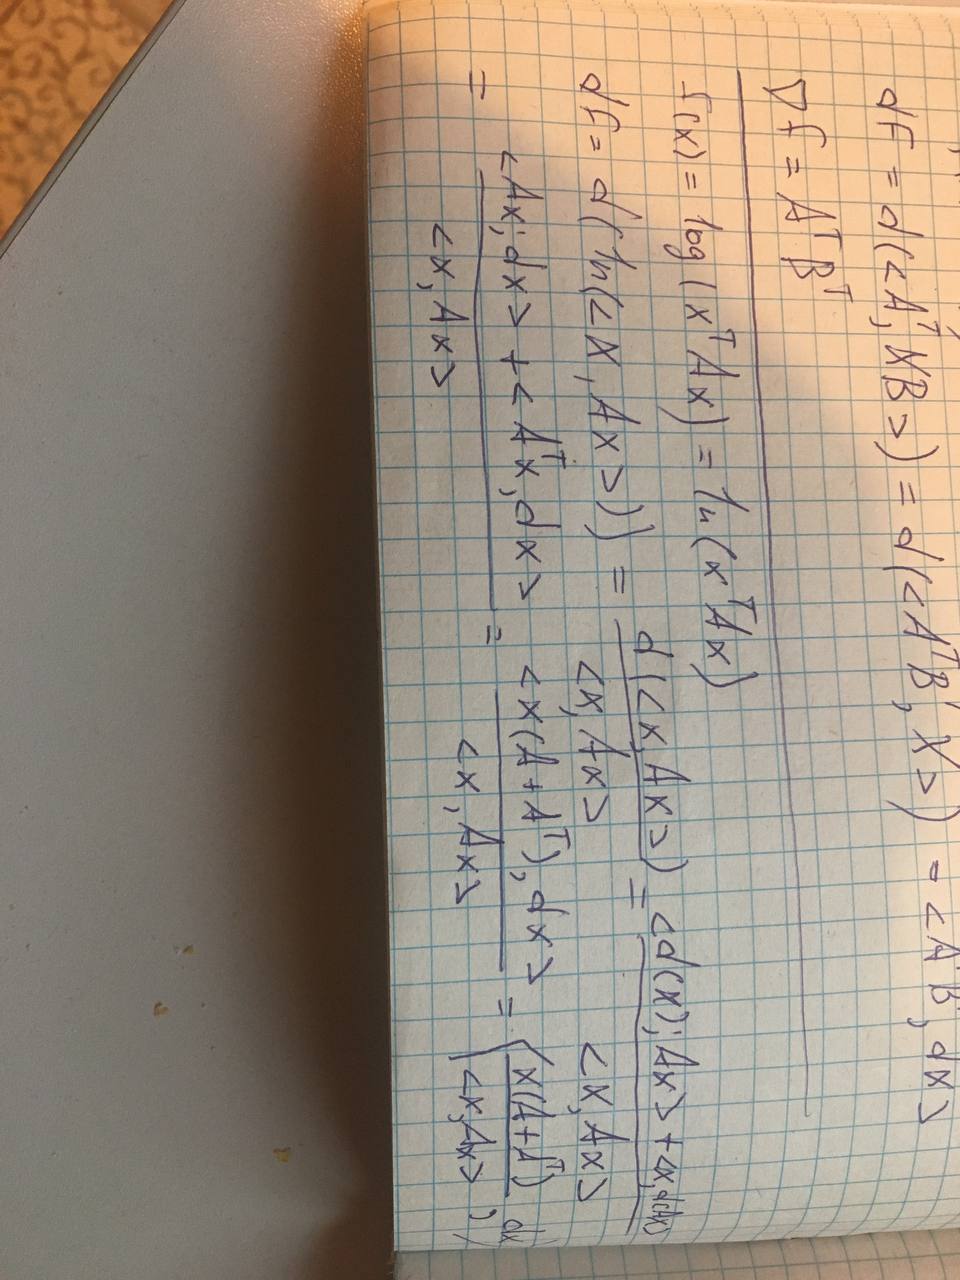 df = d(<Aᵀ, XB>) = d(<AᵀBᵀ, X>) = <AᵀBᵀ, dx>
∇f = AᵀBᵀ
f(x) = log(xᵀAx) = ln(xᵀAx)
df = d(ln(<x, Ax>)) = d(<x, Ax>) / <x, Ax> = <d(x); Ax> + <x, d(Ax)> / <x, Ax>
= <Ax; dx> + <Aᵀx, dx> / <x, Ax> = <x(A + Aᵀ), dx> / <x, Ax> = <x(A+Aᵀ) / <x, Ax>, dx>